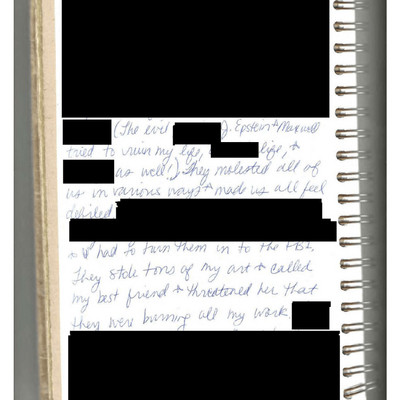 (The evil ). Epstein + Maxwell
tried to ruin my life, life, +
as well!) They molested all of
us in various ways + made us all feel
defiled
had to turn them in to the FBI.
They stole tons of my art + called
my best friend + threatened her that
they were burning all my work